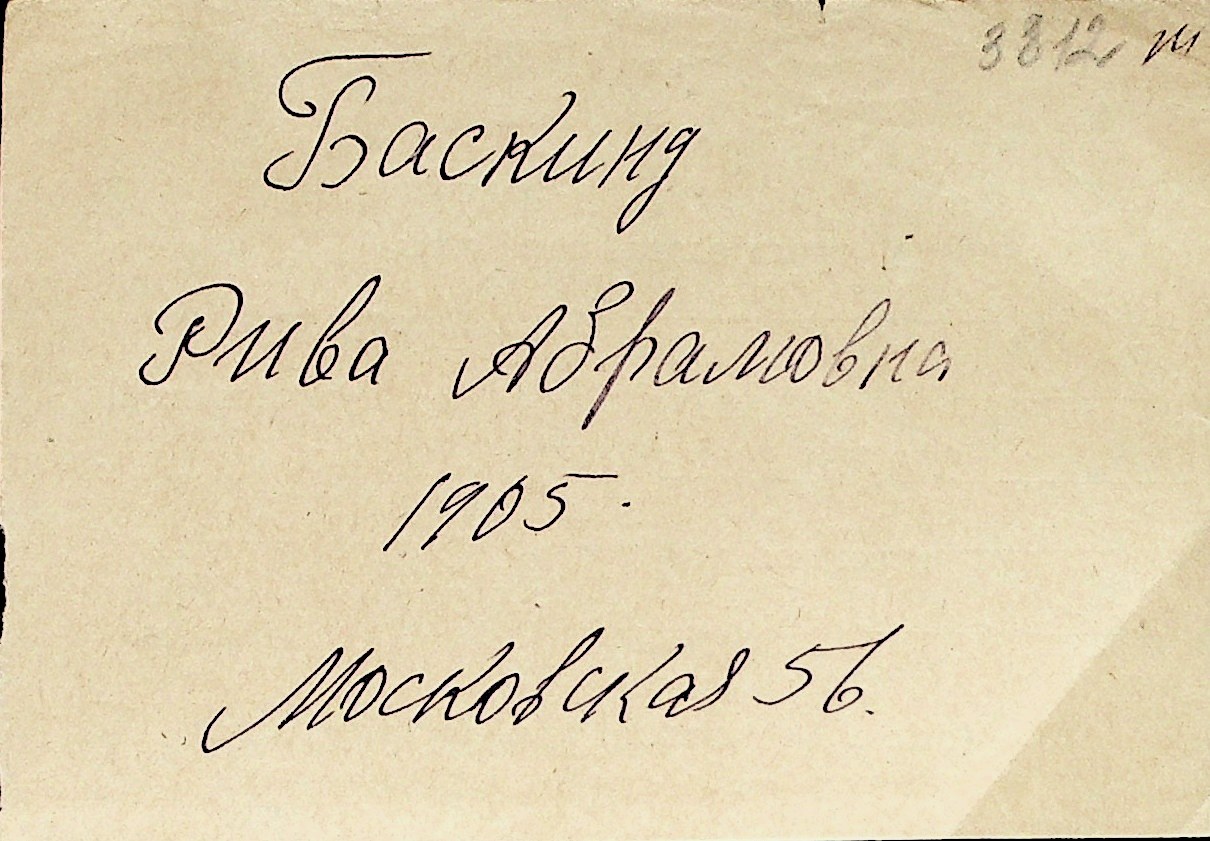 3812 ш
Баскинд
Рива Абрамовна
1905.
Московская 56.